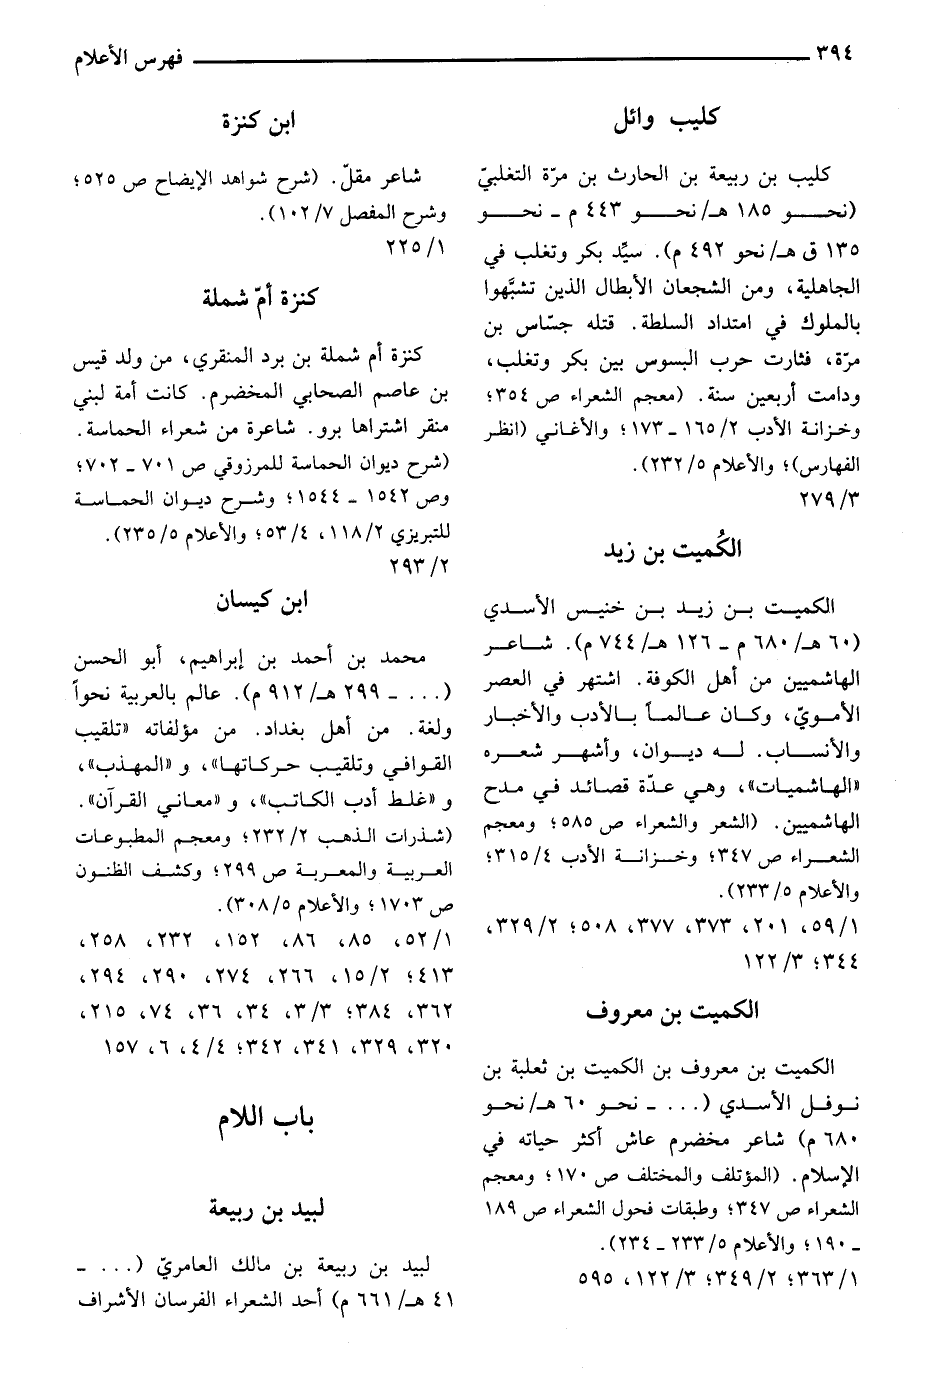 ٣٩٤ فهرس الأعلام
كليب وائل
كليب بن ربيعة بن الحارث بن مرّة التغلبيّ
(نحو ١٨٥ هـ/نحو ٤٤٣ م ـ نحو
١٣٥ ق هـ/نحو ٤٩٢ م). سيِّد بكر وتغلب في
الجاهلية، ومن الشجعان الأبطال الذين تشبَّهوا
بالملوك في امتداد السلطة. قتله جسّاس بن
مرّة، فثارت حرب البسوس بين بكر وتغلب،
ودامت أربعين سنة. (معجم الشعراء ص ٣٥٤؛
وخزانة الأدب ٢/ ١٦٥ ـ ١٧٣؛ والأغاني (انظر
الفهارس)؛ والأعلام ٥/ ٢٣٢).
٣/ ٢٧٩
الكُميت بن زيد
الكميت بن زيد بن خنيس الأسدي
(٦٠ هـ/ ٦٨٠ م ـ ١٢٦ هـ/ ٧٤٤ م). شاعر
الهاشميين من أهل الكوفة. اشتهر في العصر
الأمويّ، وكان عالماً بالأدب والأخبار
والأنساب. له ديوان، وأشهر شعره
«الهاشميات»، وهي عدّة قصائد في مدح
الهاشميين. (الشعر والشعراء ص ٥٨٥؛ ومعجم
الشعراء ص ٣٤٧؛ وخزانة الأدب ٤/ ٣١٥؛
والأعلام ٥/ ٢٣٣).
١/ ٥٩، ٢٠١، ٣٧٣، ٣٧٧، ٥٠٨؛ ٢/ ٣٢٩،
٣٤٤؛ ٣/ ١٢٢
الكميت بن معروف
الكميت بن معروف بن الكميت بن ثعلبة بن
نوفل الأسدي (... ـ نحو ٦٠ هـ/نحو
٦٨٠ م) شاعر مخضرم عاش أكثر حياته في
الإسلام. (المؤتلف والمختلف ص ١٧٠؛ ومعجم
الشعراء ص ٣٤٧؛ وطبقات فحول الشعراء ص ١٨٩
ـ ١٩٠؛ والأعلام ٥/ ٢٣٣ ـ ٢٣٤).
١/ ٣٦٣؛ ٢/ ٣٤٩؛ ٣/ ١٢٢، ٥٩٥
ابن كنزة
شاعر مقلّ. (شرح شواهد الإيضاح ص ٥٢٥؛
وشرح المفصل ٧/ ١٠٢).
١/ ٢٢٥
كنزة أمّ شملة
كنزة أم شملة بن برد المنقري، من ولد قيس
بن عاصم الصحابي المخضرم. كانت أمة لبني
منقر اشتراها برو. شاعرة من شعراء الحماسة.
(شرح ديوان الحماسة للمرزوقي ص ٧٠١ ـ ٧٠٢؛
وص ١٥٤٢ ـ ١٥٤٤؛ وشرح ديوان الحماسة
للتبريزي ٢/ ١١٨، ٤/ ٥٣؛ والأعلام ٥/ ٢٣٥).
٢/ ٢٩٣
ابن كيسان
محمد بن أحمد بن إبراهيم، أبو الحسن
(... ـ ٢٩٩ هـ/ ٩١٢ م). عالم بالعربية نحواً
ولغة. من أهل بغداد. من مؤلفاته «تلقيب
القوافي وتلقيب حركاتها»، و «المهذب»،
و «غلط أدب الكاتب»، و «معاني القرآن».
(شذرات الذهب ٢/ ٢٣٢؛ ومعجم المطبوعات
العربية والمعربة ص ٢٩٩؛ وكشف الظنون
ص ١٧٠٣؛ والأعلام ٥/ ٣٠٨).
١/ ٥٢، ٨٥، ٨٦، ١٥٢، ٢٣٢، ٢٥٨،
٤١٣؛ ٢/ ١٥، ٢٦٦، ٢٧٤، ٢٩٠، ٢٩٤،
٣٦٢، ٣٨٤؛ ٣/ ٣، ٣٤، ٣٦، ٧٤، ٢١٥،
٣٢٠، ٣٢٩، ٣٤١، ٣٤٢؛ ٤/ ٤، ٦، ١٥٧
باب اللام
لبيد بن ربيعة
لبيد بن ربيعة بن مالك العامريّ (... ـ
٤١ هـ/ ٦٦١ م) أحد الشعراء الفرسان الأشراف